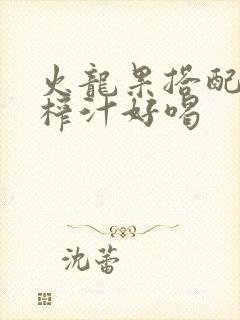 火龍果搭配
榨汁好喝
沈蕾